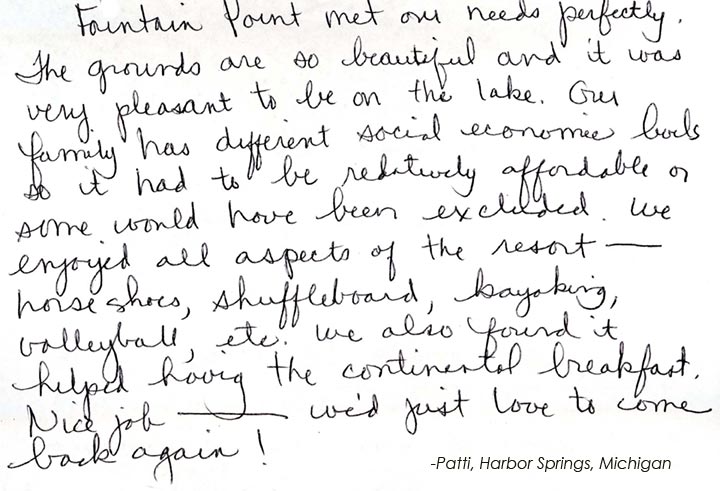 Fountain Point met our needs perfectly.
The grounds are so beautiful and it was
very pleasant to be on the lake. Our
family has different social economic levels
so it had to be relatively affordable or
some would have been excluded. We
enjoyed all aspects of the resort —
horseshoes, shuffleboard, kayaking,
volleyball, etc. We also found it
helped having the continental breakfast.
Nice job — we'd just love to come
back again!
-Patti, Harbor Springs, Michigan